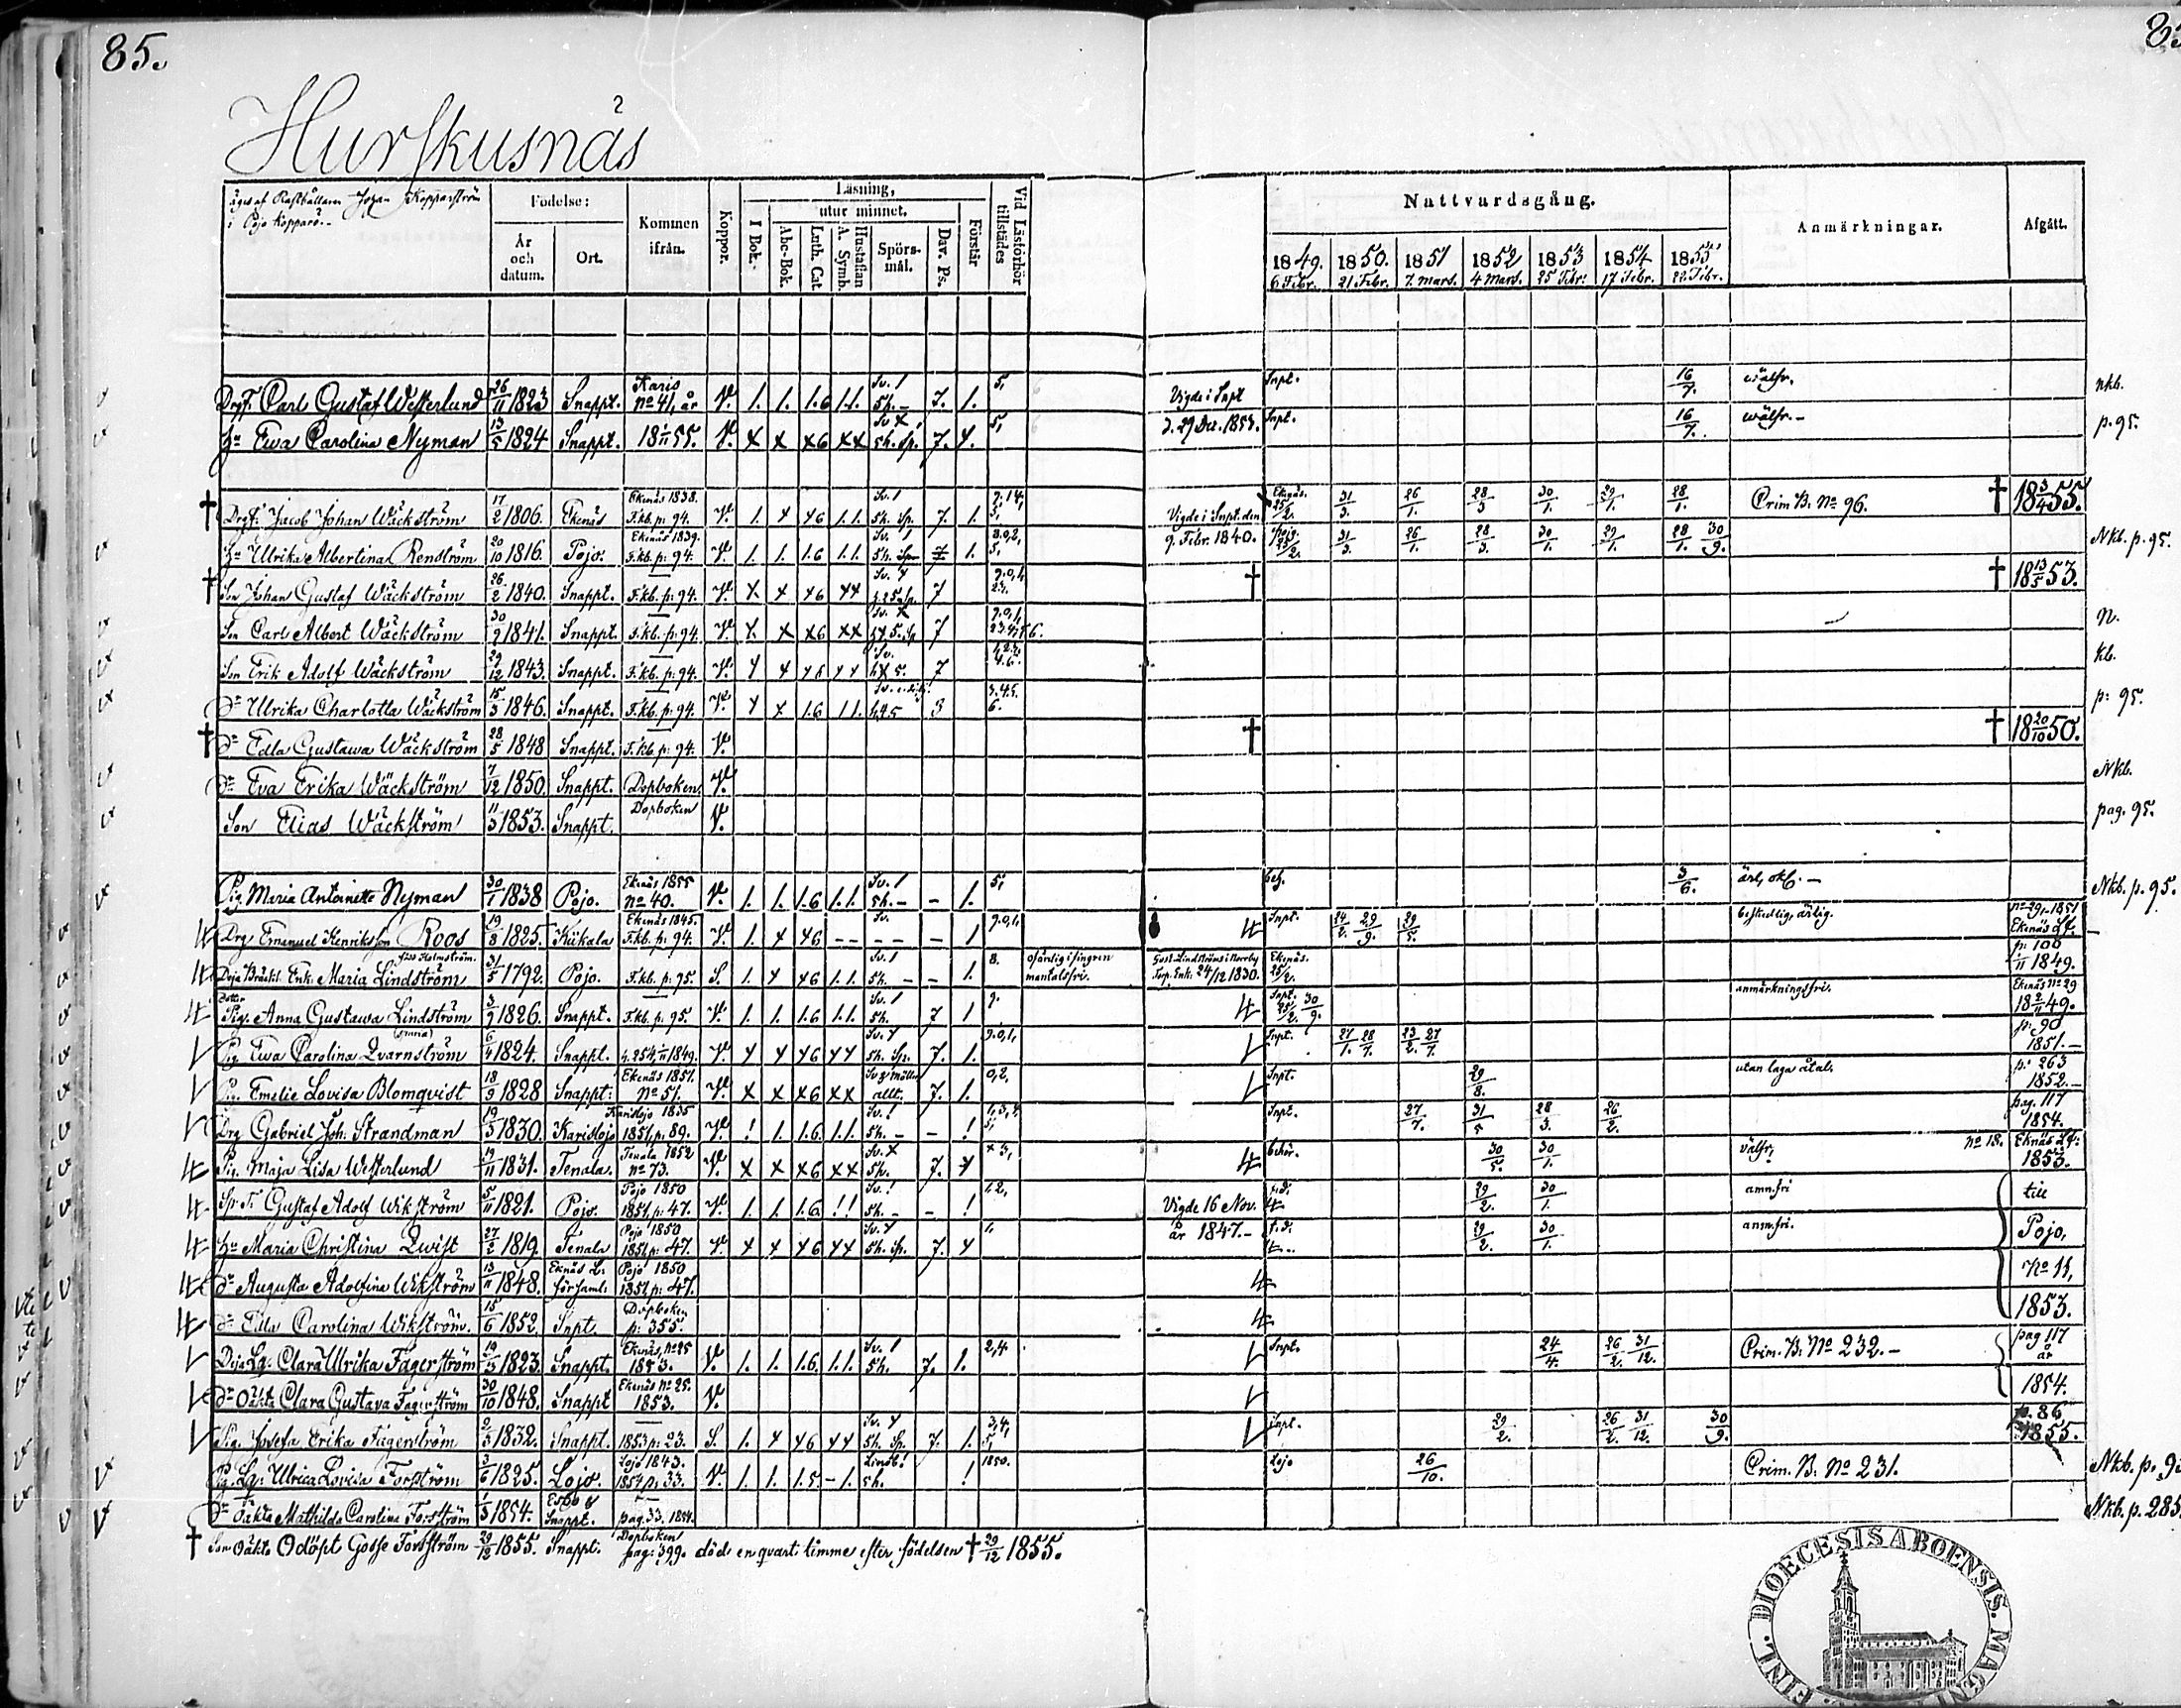 85.
Hurskusnäs
äges af Rusthållaren Johan Kopparström
i Pojo Kopparö.
Födelse:
År och datum.
Ort.
Kommen ifrån.
Koppor.
Läsning,
utur minnet.
I Bok.
Abc-Bok.
Luth. Cat.
Hustaflan A. Symb.
Spörsmål.
Dav. Ps.
Förstår
Vid Läsförhör tillstädes
Nattvardsgång.
1849. 6 Febr.
1850. 21 Febr.
1851 7. Mars.
1852 4 Mars.
1853 25 Febr.
1854 17 Febr.
1855 22 Febr.
Anmärkningar.
Afgått.
Drgf. Carl Gustaf Westerlund 26/11 1823 Snappt. Karis no 41, år V. 1. 1. 1.6 1.1. Sv. 1 5h. – 7. 1. 5, Vigde i Snpt Snpt. 16/7. wälfr. nkb.
Hu Ewa Carolina Nyman 13/5 1824 Snappt. 18 1/11 55. V. x x x6 xx Sv x 5h. sp. 7. 5, d. 27 Dec. 1853. Snpt. 16/7. wälfr. – p. 95.
† Drgf. Jacob Johan Wäckström 17/2 1806. Ekenäs Ekenäs 1838. F.kb. p: 94. V. 1. x x6 1.1. Sv. 1 5h. Sp. 7. 1. Vigde i Snpt. den Ekenäs. 25/2. 31/3. 26/1. 28/3 30/1. 29/1. 28/1. Crim. B. No 96. † 18 3/4 55.
Hu Ulrika Albertina Renström 20/10 1816. Pojo. Ekenäs 1839. F.kb. p: 94. V. 1. 1. 1.6 1.1. Sv. 1 5h. 1. 9. Febr. 1840. Pojo. 25/2. 31/3. 26/1. 28/3. 30/1. 29/1. 28/1. 30/9. Nkb. p. 95.
† Son Johan Gustaf Wäckström 26/2 1840. Snappt. F.kb. p: 94. V. x x x6 xx 7 † † 18 13/5 53.
Son Carl Albert Wäckström 30/9 1841. Snappt. F.kb. p: 94. V. x x x6 xx 7 N.
Son Erik Adolf Wäckström 29/12 1843. Snappt. F.kb. p: 94. V. x x x6 xx 7 kb.
Dr Ulrika Charlotta Wäckström 15/3 1846. Snappt. F.kb. p: 94. V. x x 1.6 1.1. 3 3.4.5. 6. p: 95.
† Dr Edla Gustawa Wäckström 28/5 1848 Snappt. F.kb. p: 94. V. † † 18 20/10 50.
Dr Eva Erika Wäckström 7/12 1850. Snappt. Dopboken V. Nkb.
Son Elias Wäckström 11/3 1853. Snappt. Dopboken V. pag. 95.
Pig. Maria Antoinette Nyman 30/1 1838 Pojo. Ekenäs 1855 no 40. V. 1. 1. 1.6 1.1. Sv. 1 5h. – – 1. 5, 3/6. Nkb. p. 95.
Drg Emanuel Henriksson Roos 19/8 1825. Kiikala Ekenäs 1845. F.kb. p: 94. V. 1. x x6 – – Sv. – – 1 9.0,1, Snpt. 24/2. 29/9. 29/5. beskedlig, ärlig. no 291–1851 Ekenäs Lf.
född Holmström.
Enk. Maria Lindström 31/5 1792. Pojo. F.kb. p: 95. S. 1. x x6 1.1. Sv. 1 5h. – – 1. 8. ofärdig i fingren mantalsfri. Gust. Lindströms i Norrby Torp. Enk: 24/12 1830. Ekenäs. 25/2. p: 100 1/11 1849.
Dotter
Pig. Anna Gustawa Lindström 3/9 1826. Snappt. F.kb. p. 95. V. 1. 1. 1.6 1.1. Sv. 1 5h. 7 1 9. Snpt. 25/2. 30/9. anmärkningsfri. Ekenäs No 29 18 2/11 49.
Pig Ewa Carolina Qvarnström 6/4 1824. Snappt. V. x x x6 xx Sv. x 5h. Sp. 7. 1. 9.0,1, Snpt. 27/1. 28/7. 23/2. 27/7. p: 90 1851. –
Pig. Emelie Lovisa Blomqvist 18/9 1828 Snappt: Ekenäs 1851. No 51. V. x x x6 xx allt. 7. 1. 0,2, Snpt. 29/8. utan laga åtal. p: 263 1852. –
Drg Gabriel Joh. Strandman 19/3 1830. Karislojo Karislojo 1835 1851, p: 89. V. ! 1. 1.6. 1.1. Sv. ! 5h. – – ! Snpt. 27/7. 31/5 28/3. 26/2. pag. 117 1854.
Pig. Maja Lisa Westerlund 19/11 1831. Tenala. Tenala 1852 No 73. V. x x x6 xx Sv. x 5h. 7. x 30/5. 30/1. välfr, No 18. Eknäs Lf: 1853.
Sp. T. Gustaf Adolf Wikström 5/11 1821. Pojo. Pojo 1850 1851, p: 47. V. 1. 1. 1.6 !! Sv. ! 5h. – – ! 1.2, Vigde 16 Nov. 29/2. 30/1. anm.fri till
Hu Maria Christina Qwist 27/2 1819. Tenala Pojo 1850 1851, p: 47. V. x x x6 xx Sv. x 5h. Sp. 7. x 1. år 1847. – 29/2. 30/1. anm.fri. Pojo,
Dr Augusta Adolfina Wikström 13/11 1848. Eknäs L: församl: Pojo 1850 1851, p: 47. No 11,
Dr Edla Carolina Wikström. 15/6 1852. Snpt. Dopboken p: 355. 1853.
Clara Ulrika Fagerström 19/3 1823. Snappt. Ekenäs, No 25 1853. V. 1. 1. 1.6. 1.1. Sv. 1 5h. 7. 1. 2,4. Snpt. 24/4. 26/2. 31/12. Crim. B. No 232. – pag 117 år
Dr Oäkta Clara Gustava Fagerström 30/10 1848. Snappt Ekenäs No 25. 1853. V. 1854.
Pig. Josefa Erika Fagerström 2/3 1832. Snappt. 1853 p: 23. S. 1. x x6 xx Sv. x 5h. Sp. 7. 1. 3,4, 5, Snpt. 29/2. 26/2. 31/12. 30/9. p. 86 1855.
Pig. Lg: Ulrica Lovisa Forsström 3/6 1825. Lojo. Lojo 1843. 1854 p: 33. V. 1. 1. 1.5 – 1. 5h. ! 1850. Lojo 26/10. Crim. B. No 231. Nkb. p. 9
Dr Oäkta Mathilda Carolina Forsström 1/3 1854. Esbo Snappt. pag. 33. 1854. Nkb. p. 285.
† Son Oäkta Odöpt Gosse Forsström 29/12 1855. Snappt. Dopboken pag: 399. död en quart timme efter födelsen † 29/12 1855.
FINL. DIOECESIS ABOENSIS. MAGNI